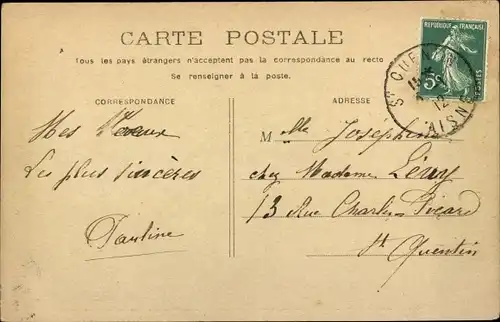 CARTE POSTALE
Tous les pays étrangers n'acceptent pas la correspondance au recto
Se renseigner à la poste.
CORRESPONDANCE
ADRESSE
Mes Vœux
Les plus sincères
Pauline
Melle Joséphine
chez Madame Lévy
13 Rue Charles Picard
St Quentin
RÉPUBLIQUE FRANÇAISE
5c
POSTES
ST QUENTIN
12
AISNE